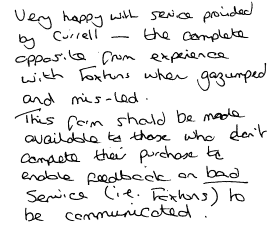 Very happy with service provided
by Currell — the complete
opposite from experience
with Foxtons when gazumped
and mis-led.
This form should be made
available to those who don't
complete their purchase to
enable feedback on bad
Service (i.e. Foxtons) to
be communicated.